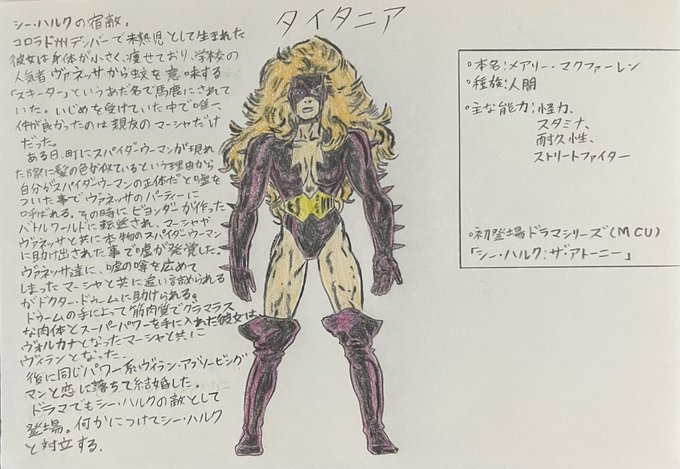 タイタニア
シー・ハルクの宿敵。
コロラド州デンバーで未熟児として生まれた
彼女は身体が小さく、痩せており、学校の
人気者ヴァネッサから蚊を意味する
「スキーター」というあだ名で馬鹿にされて
いた。いじめを受けていた中で唯一、
仲が良かったのは親友のマーシャだけ
だった。
ある日、町にスパイダーウーマンが現れ
た際に髪の色が似ているという理由から
自分がスパイダーウーマンの正体だと嘘を
ついた事でヴァネッサのパーティーに
呼ばれる。その時にビヨンダーが作った
バトルワールドに転送され、マーシャや
ヴァネッサと共に本物のスパイダーウーマン
に助け出された事で嘘が発覚した。
ヴァネッサ達に、嘘の噂を広めて
しまったマーシャと共に追い詰められる
がドクター・ドゥームに助けられる。
ドゥームの手によって筋肉質でグラマラス
な肉体とスーパーパワーを手に入れた彼女は、
ヴォルカナとなったマーシャと共に
ヴィランとなった。
後に同じパワー系ヴィラン・アブソービング
マンと恋に落ちて結婚した。
ドラマでもシー・ハルクの敵として
登場。何かにつけてシー・ハルク
と対立する。
○本名:メアリー・マクファーレン
○種族:人間
○主な能力:怪力、
スタミナ、
耐久性、
ストリートファイター
○初登場ドラマシリーズ(MCU)
「シー・ハルク:ザ・アトーニー」